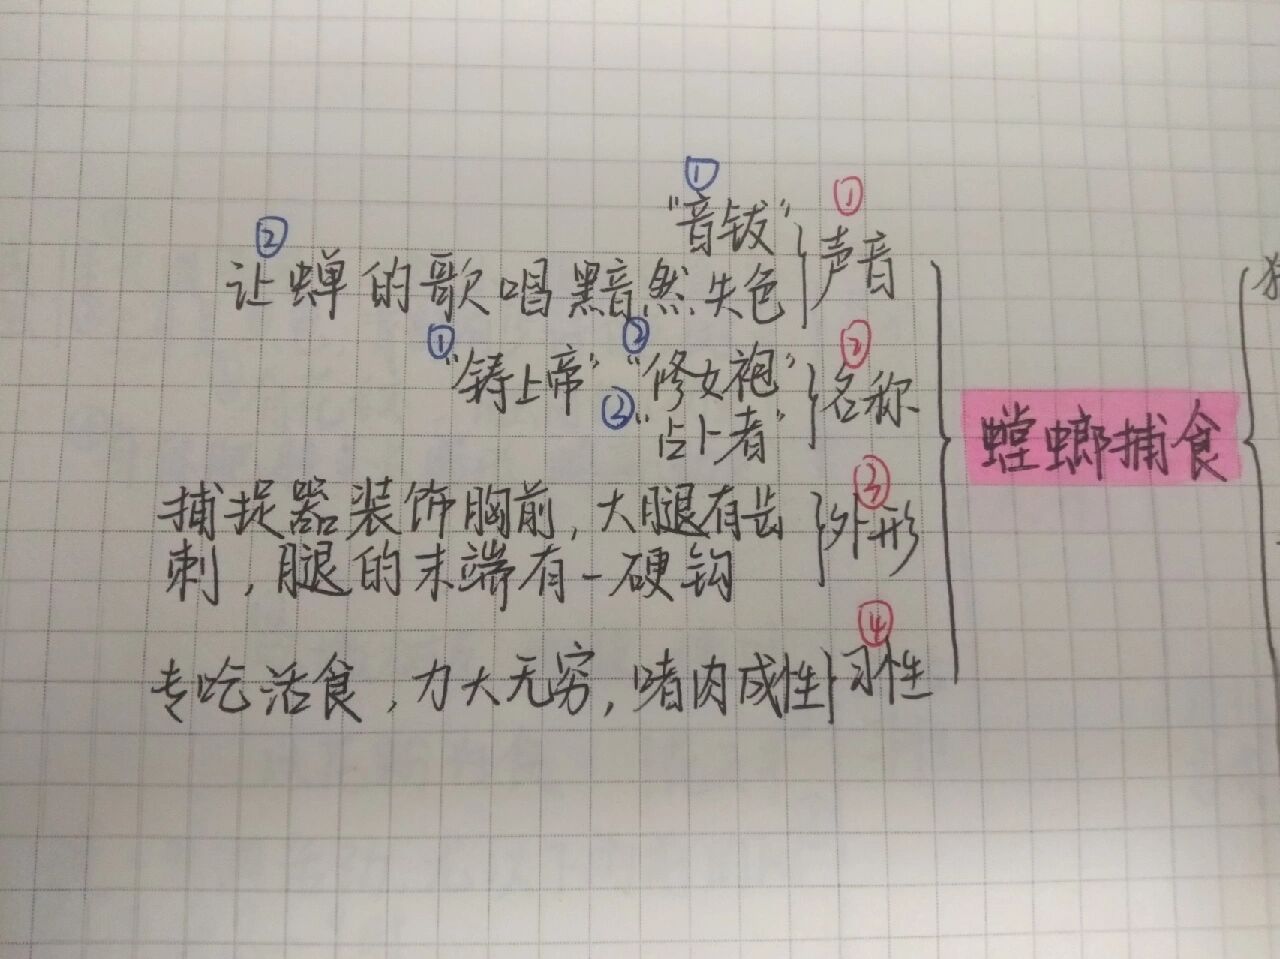 ①
①
"音钹"
声音
②
让蝉的歌唱黯然失色
①
②
②
"铸上帝" "修女袍"
名称
②
"占卜者"
螳螂捕食
③
捕捉器装饰胸前,大腿有齿
外形
刺,腿的末端有一硬钩
④
专吃活食,力大无穷,嗜肉成性
习性